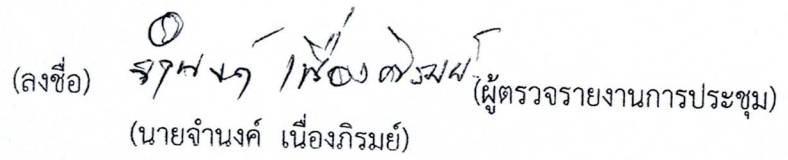 (ลงชื่อ) จำนงค์ เนื่องภิรมย์ (ผู้ตรวจรายงานการประชุม)
(นายจำนงค์ เนื่องภิรมย์)